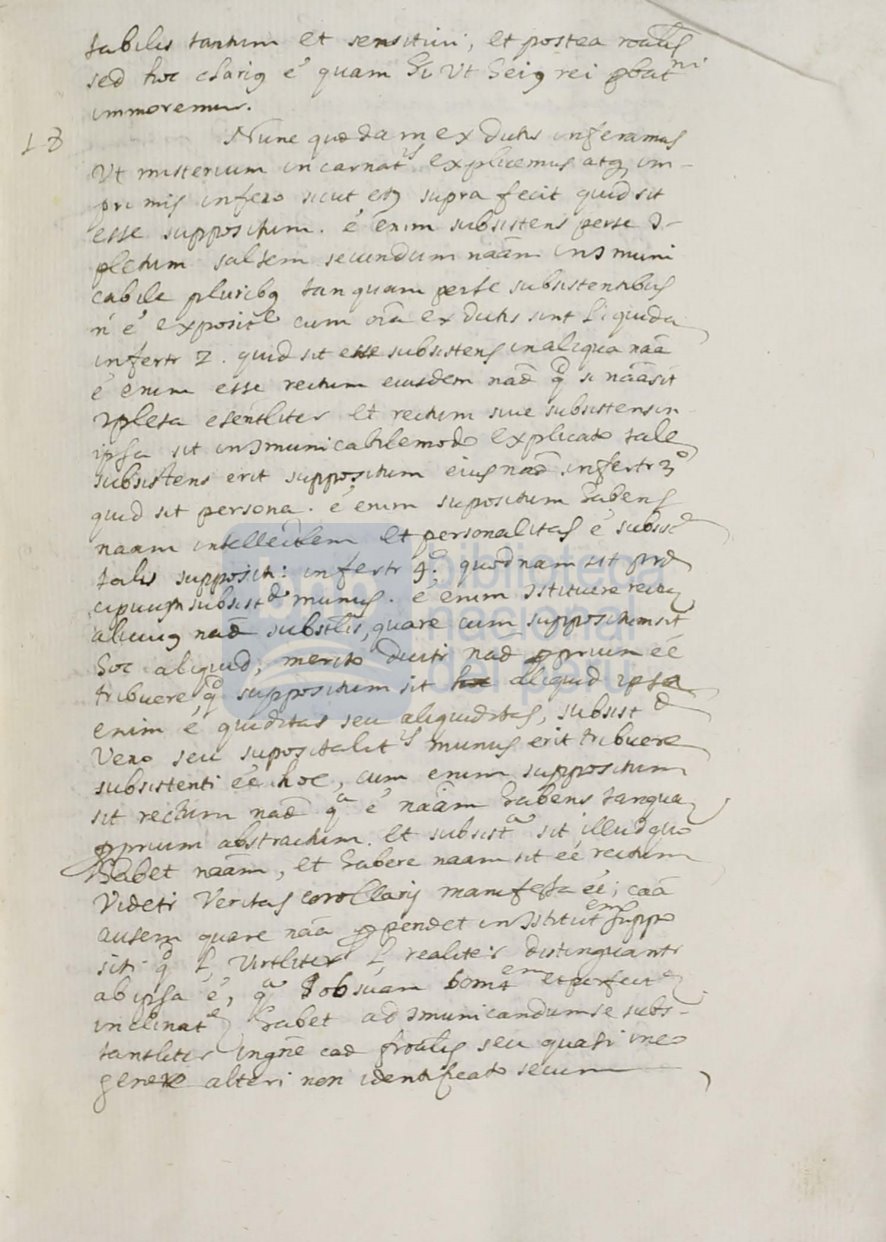 tabilis tantum et sensitivi, et postea ronalis
sed hoc clariꝯ é quam ut ut heiꝯ rei pbatni
immoremur.
18 Nunc quædam ex dictis inferamus
Ut misterium incarnatis explicemus atq im-
primis infero sicut est supra fecit quid sit
esse suppositum. é enim subsistens per se ɔ-
pletum saltem secundum nãam inɔmuni
cabile pluribꝯ tanquam per se subsistentibus
ñ é expositè cum oīa ex dictis sint liquida
infertr 2. quid sit esse subsistens in aliqua nãa
é enim esse rectum eiusdem nãæ q si nãa sit
ɔpleta esentliter et rectum sive subsistens in
ipsa sit inɔmunicabile modo explicato tale
subsistens erit suppositum eius nãæ infertr 3º
quid sit persona. é enim supositum habens
naam intellectlem et personalitas é subsista
talis suppositi: infertr 4º. quodnam sit præ
cipuum subsistæ munus. é enim ɔstituere rectum
alicuiꝯ nãæ substlis, quare cum suppositum sit
hoc aliquid; merito dicitr nãæ pprium éé
tribuere q suppositum sit aliquid ipsa
enim é quiditas seu aliquiditas, subsistæ
Vero seu supositalitis munus erit tribuere
subsistenti éé hoc, cum enim suppositum
sit rectum nãæ qa é nãam habens tanquam
pprium abstractum. et subsista sit illud quo
habet nãam, et habere naam sit éé rectum
Videtr Veritas corollarij manifesta éé; caã
autem quare nãa ppendet in ɔstitutem suppo
siti q l, virtliter l, realiter distinguantr
ab ipsa é, qa ob suam bontem et perfecte
inclinate habet ad ɔmunicandum se subs-
tantliter in gñe caæ frmalis seu quasi in eo
genere alteri non identificato secum